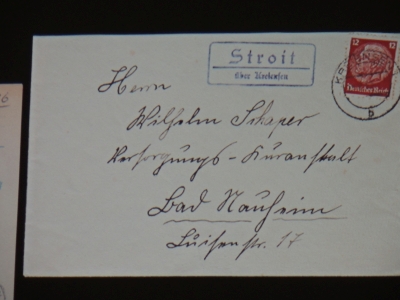 Stroit
über Kreiensen
12
Deutsches Reich
KREIENSEN
b
Herrn
Wilhelm Scheper
Versorgungs-Kuranstalt
Bad Nauheim
Luisenstr. 17
6